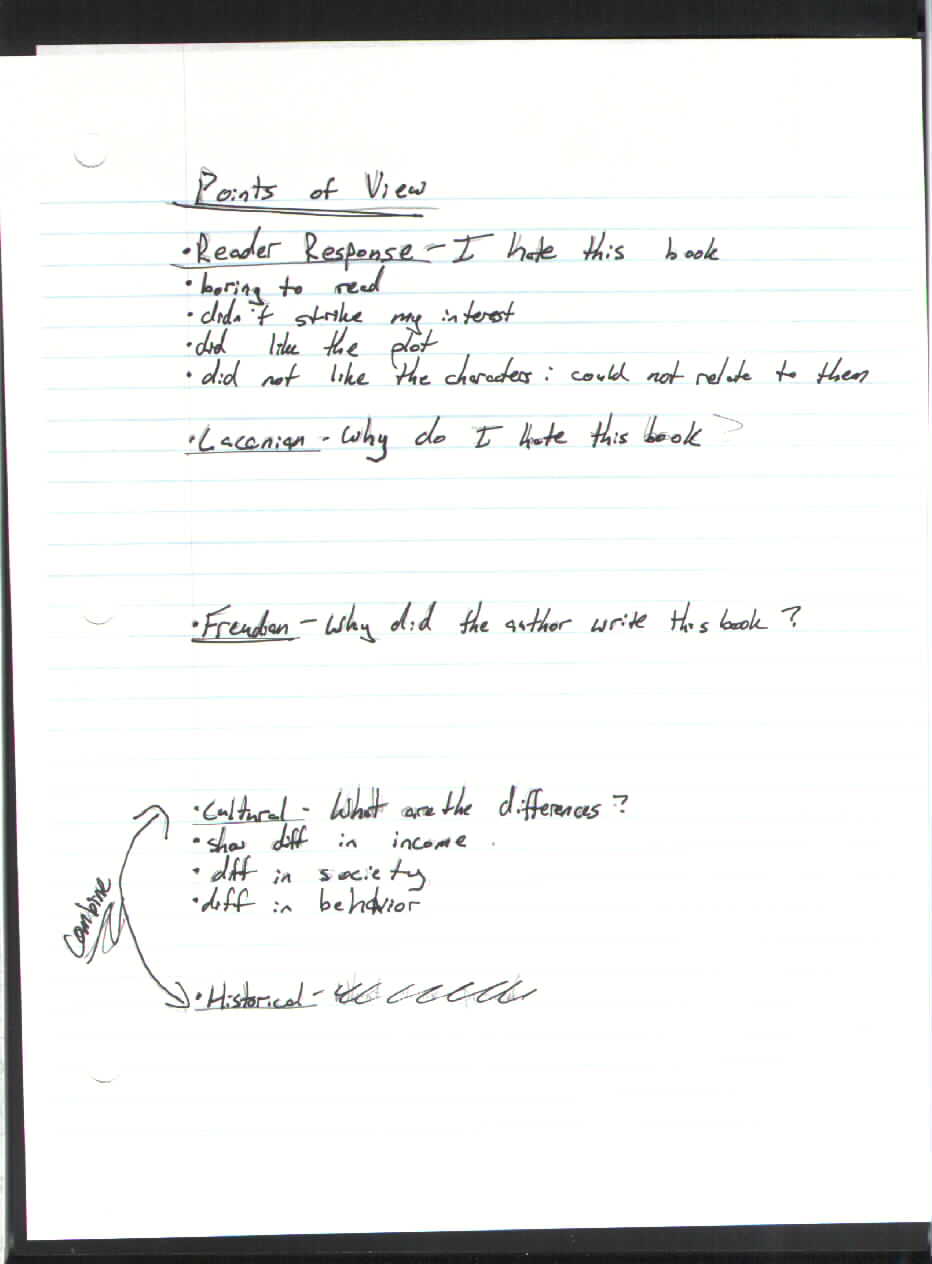 Points of View
• Reader Response - I hate this book
• boring to read
• didn't strike my interest
• did like the plot
• did not like the characters : could not relate to them
• Lacanian - Why do I hate this book ?
• Freudian - Why did the author write this book ?
• Cultural - What are the differences ?
• show diff in income
• diff in society
• diff in behavior
Combine
• Historical -